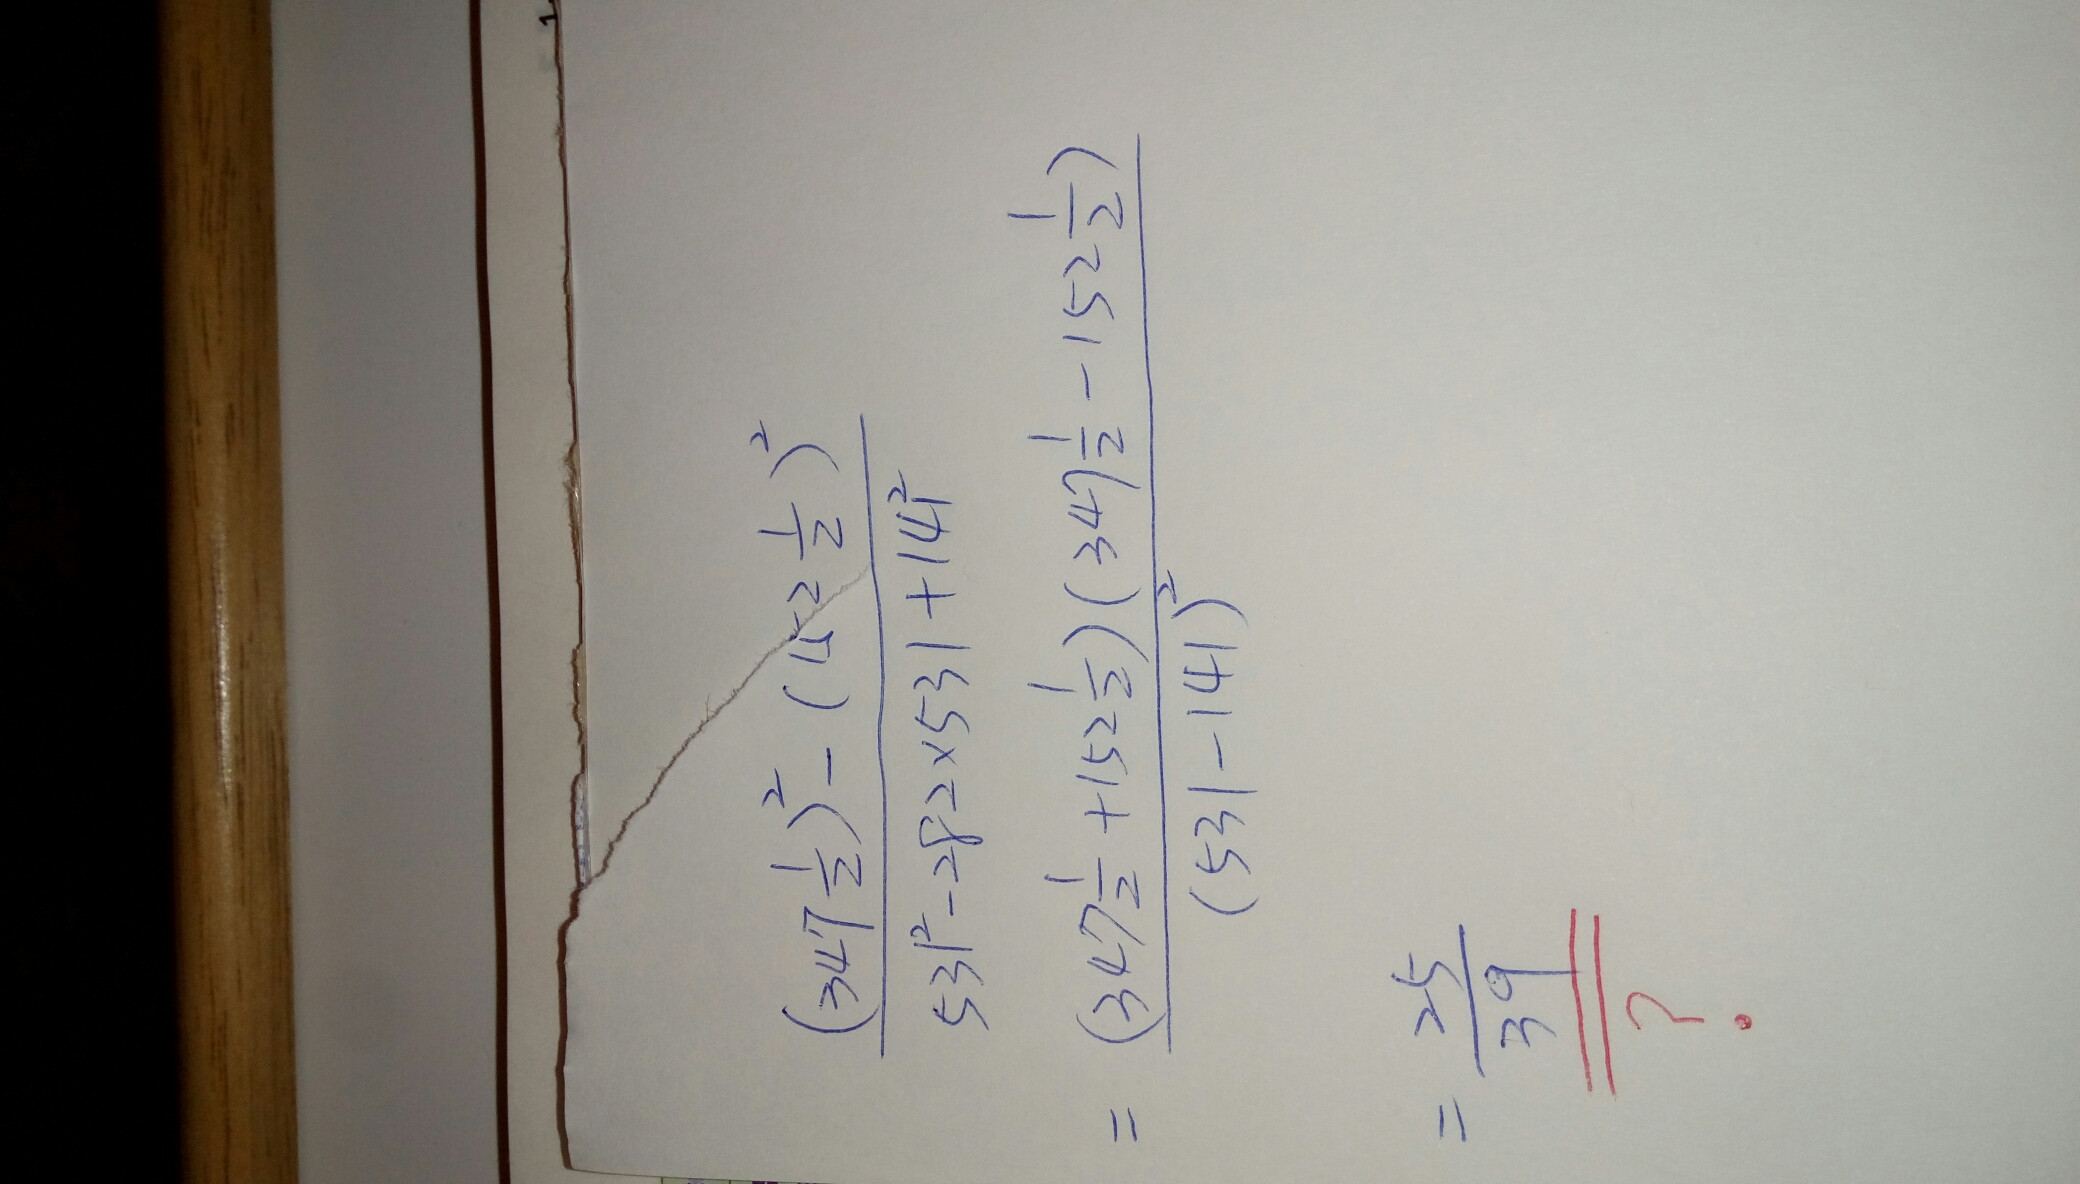 (347 1/2)² - (152 1/2)²
531² - 282 × 531 + 141²
= (347 1/2 + 152 1/2)(347 1/2 - 152 1/2)
(531 - 141)²
= 25
39
?